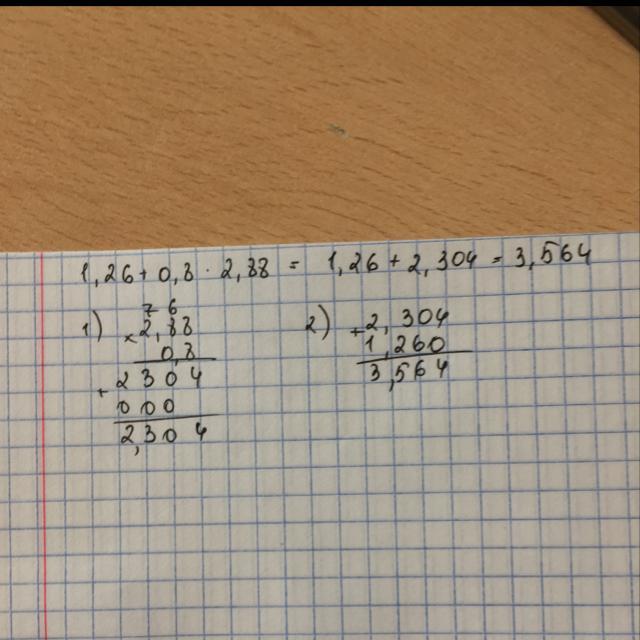 1,26 + 0,8 · 2,88 = 1,26 + 2,304 = 3,564
7 6
1) × 2,88
0,8
+ 2304
000
2,304
2) + 2,304
1,260
3,564